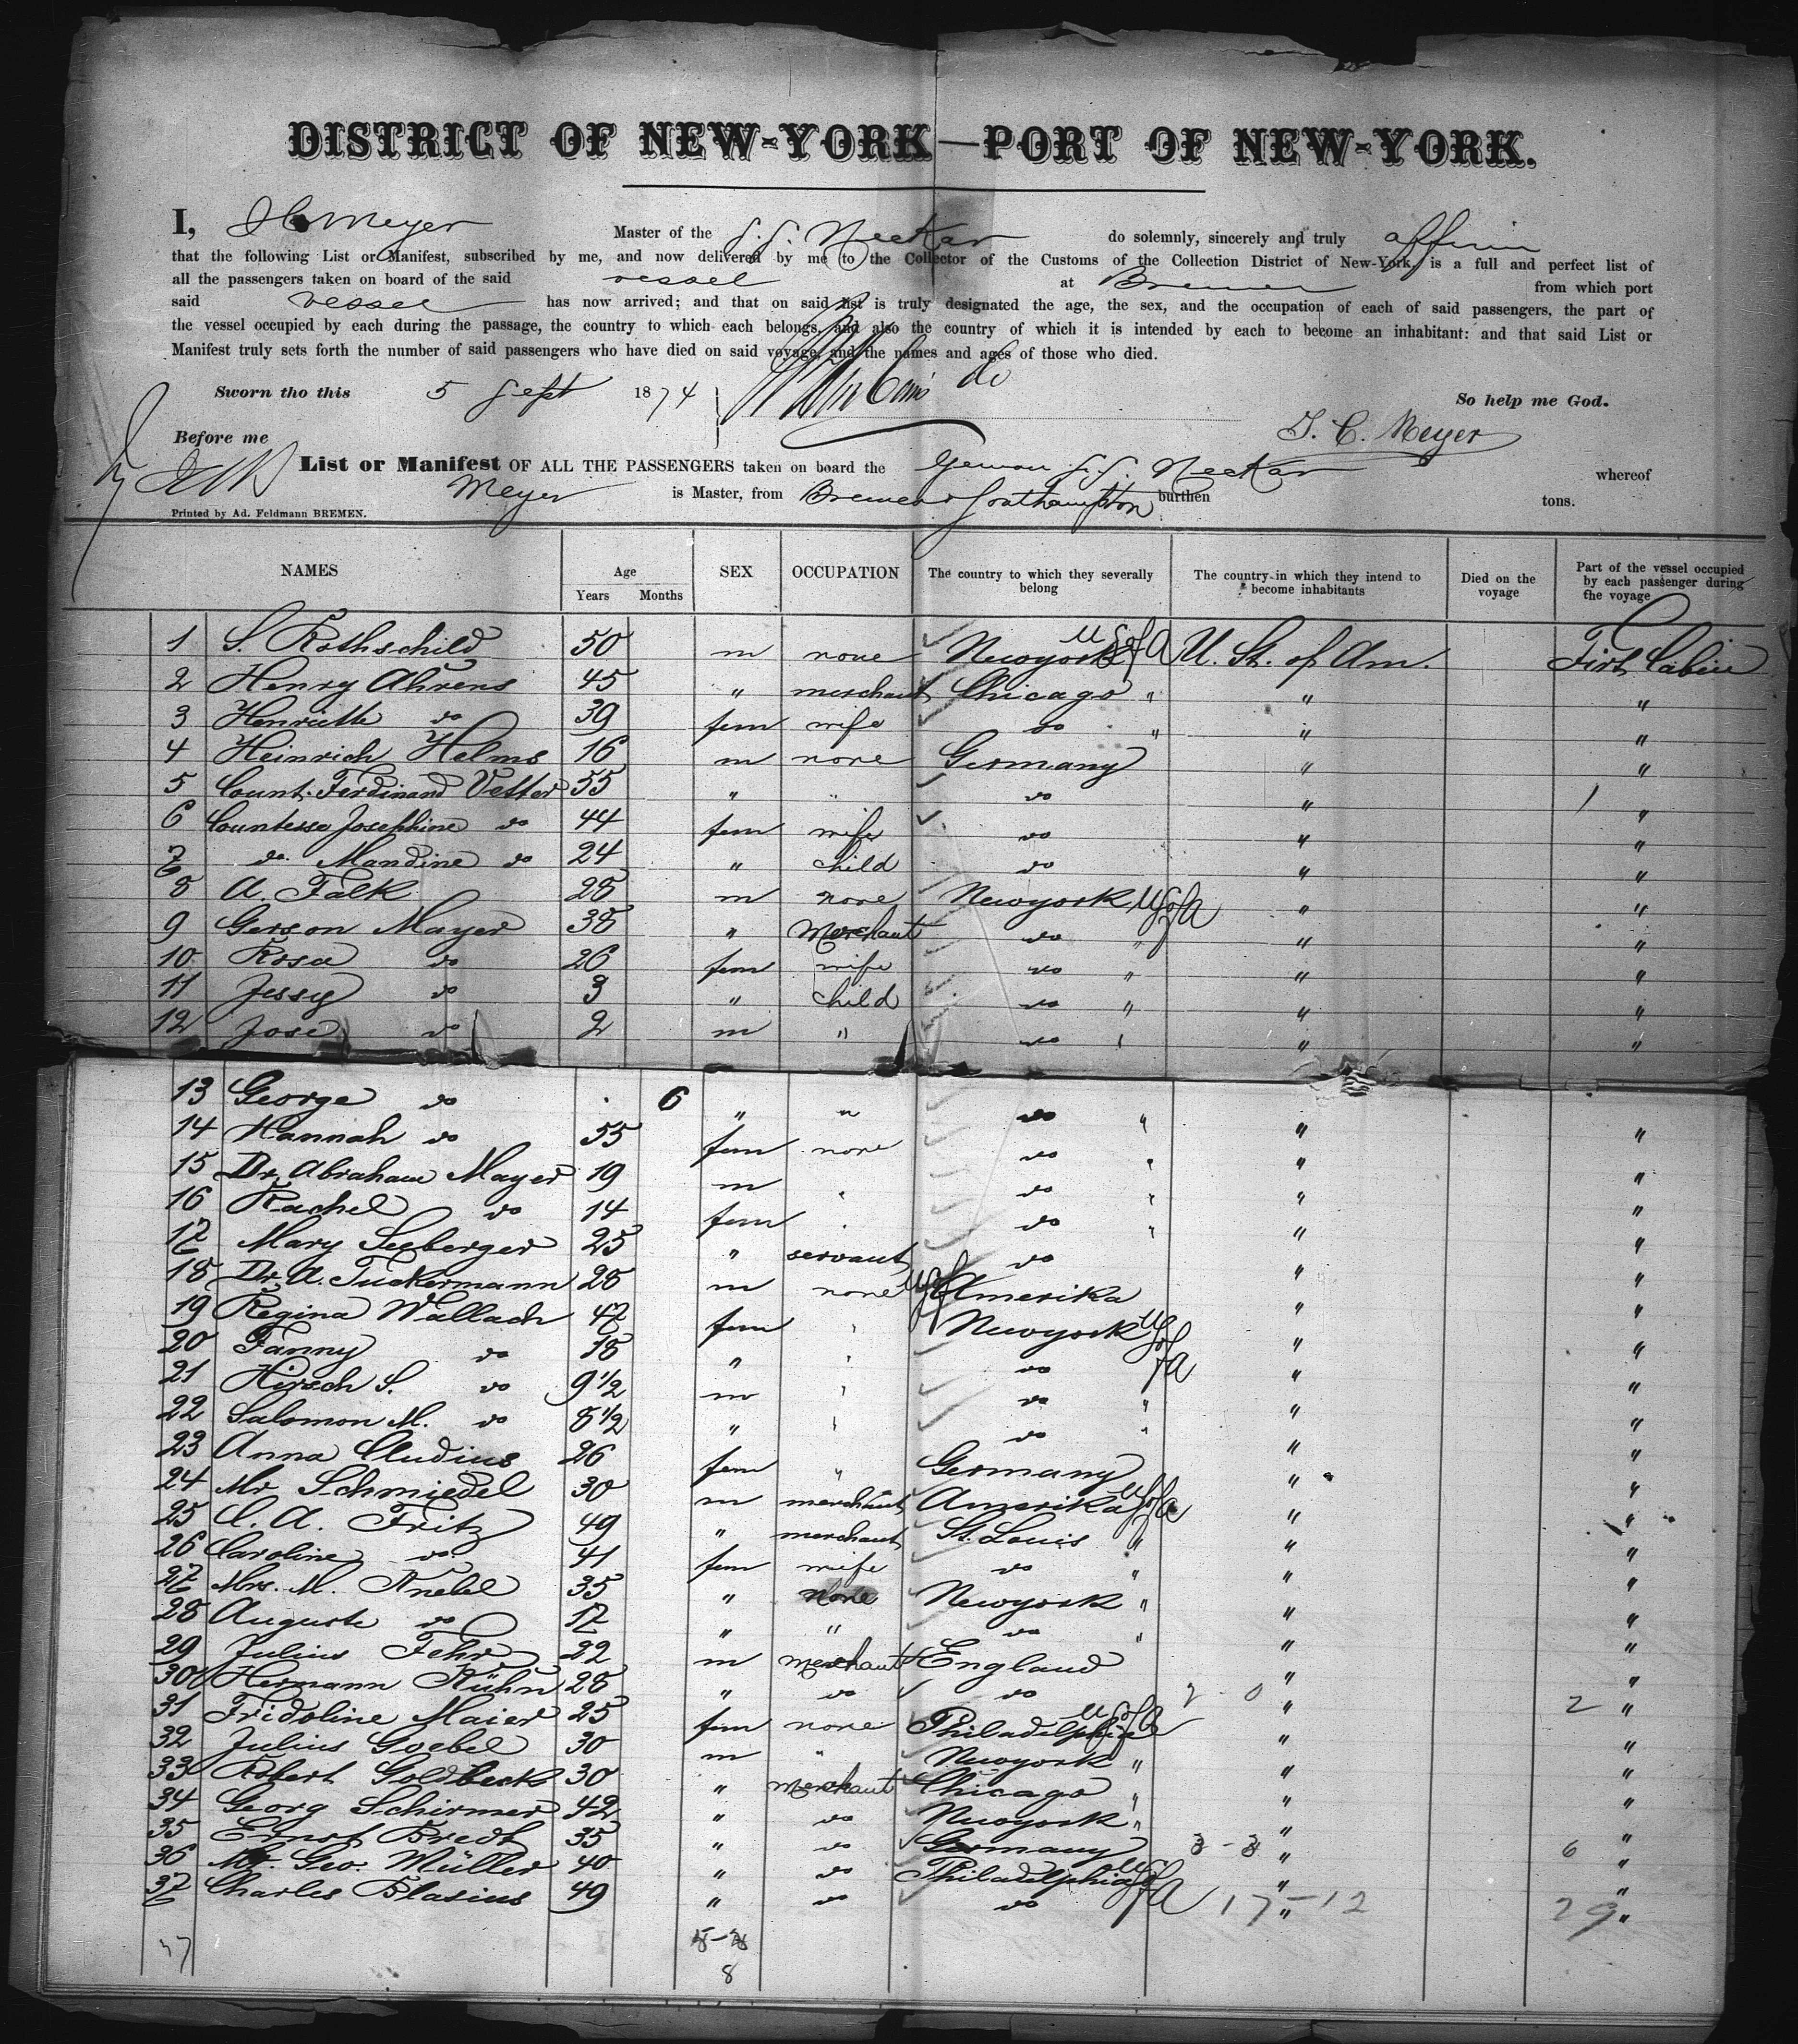 DISTRICT OF NEW-YORK—PORT OF NEW-YORK.
I, Meyer Master of the S.S. Neckar do solemnly, sincerely and truly affirm
that the following List or Manifest, subscribed by me, and now delivered by me to the Collector of the Customs of the Collection District of New-York, is a full and perfect list of
all the passengers taken on board of the said vessel at Bremen from which port
said vessel has now arrived; and that on said list is truly designated the age, the sex, and the occupation of each of said passengers, the part of
the vessel occupied by each during the passage, the country to which each belongs, and also the country of which it is intended by each to become an inhabitant: and that said List or
Manifest truly sets forth the number of said passengers who have died on said voyage, and the names and ages of those who died.
Sworn tho this 5 Sept 1874 So help me God.
Before me
List or Manifest OF ALL THE PASSENGERS taken on board the German S.S. Neckar whereof
Meyer is Master, from Bremen & Southampton burthen tons.
Printed by Ad. Feldmann BREMEN.
NAMES Age Years Months SEX OCCUPATION The country to which they severally belong The country in which they intend to become inhabitants Died on the voyage Part of the vessel occupied by each passenger during the voyage
1 S. Rothschild 50 m none Newyork U S of A U. St. of Am. First Cabin
2 Henry Ahrens 45 " merchant Chicago " " "
3 Henriette do 39 fem wife do " " "
4 Heinrich Helms 16 m none Germany " "
5 Count Ferdinand Vetter 55 " " do " "
6 Countesse Josephine do 44 fem wife do " "
7 do. Mandine do 24 " child do " "
8 A. Falk 28 m none Newyork U S of A " "
9 Gerson Mayer 38 " Merchant do " " "
10 Rosa do 26 fem wife do " " "
11 Jessy do 3 " child do " " "
12 Jose do 2 m " do " " "
13 George do 6 " " do " " "
14 Hannah do 55 fem none do " " "
15 Dr. Abraham Mayer 19 m " do " " "
16 Rachel do 14 fem " do " " "
17 Mary Seeberger 25 " servant do " "
18 Dr. A. Tuckermann 28 m none U S of Amerika " "
19 Regina Wallach 47 fem " Newyork U S of A " "
20 Fanny do 18 " " do " "
21 Hirsch S. do 9 1/2 m " do " " "
22 Salomon M. do 8 1/2 " " do " " "
23 Anna Cludius 26 fem " Germany " "
24 Mr Schmiedel 30 m merchant Amerika U S of A " "
25 C. A. Fritz 49 " merchant St. Louis " " "
26 Caroline do 41 fem wife do " " "
27 Mrs. M. Knebel 35 " none Newyork " " "
28 Auguste do 17 " " do " " "
29 Julius Fehr 22 m merchant England " "
30 Hermann Kühn 28 " do do 2 - 0 " 2 "
31 Fridoline Maier 25 fem none Philadelphia U S of A " "
32 Julius Goebel 30 m " Newyork " " "
33 Robert Goldbeck 30 " merchant Chicago " " "
34 Georg Schirmer 42 " do Newyork " " "
35 Ernst Bredt 35 " do Germany 3 - 3 " 6 "
36 Mr. Geo. Müller 40 " do Philadelphia U S of A " "
37 Charles Blasius 49 " do do 17 - 12 " 29 "
37
8